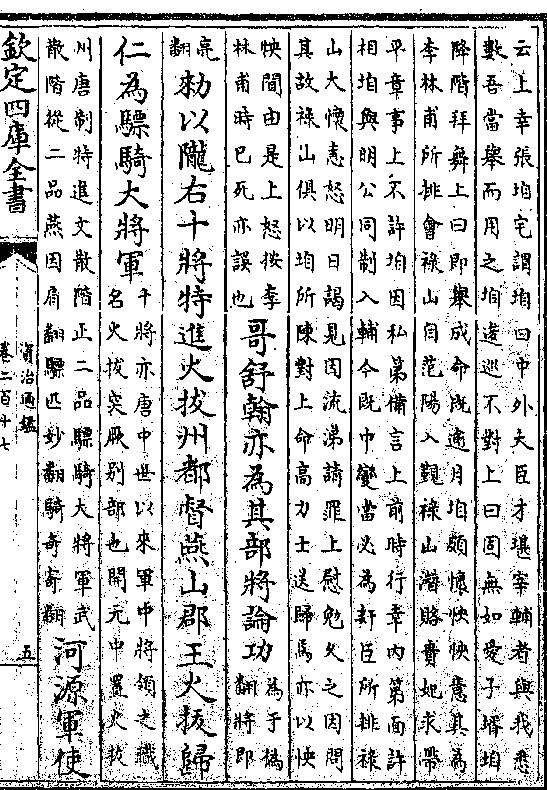 云上幸張垍宅謂垍曰中外大臣才堪宰輔者與我悉
數吾當舉而用之垍逡巡不對上曰固無如愛子壻垍
降階拜舞上曰即舉成命既逾月垍頗懷怏怏意其為
李林甫所排會祿山自范陽入覲祿山潛賂貴妃求帶
平章事上不許垍因私第備言上前時行幸內第面許
相垍與明公同制入輔今既中變當必為奸臣所排祿
山大懷恚怒明日謁見因流涕請罪上慰勉久之因問
其故祿山俱以垍所陳對上命高力士送歸焉亦以怏
怏間由是上怒按李
林甫時已死亦誤也
哥舒翰亦為其部將論功
為于偽
翻將即
亮
翻
勑以隴右十將特進火拔州都督燕山郡王火拔歸
仁為驃騎大將軍
十將亦唐中世以來軍中將領之職
名火拔突厥别部也開元中置火拔
州唐制特進文散階正二品驃騎大將軍武
散階從二品燕因肩翻驃匹妙翻騎奇寄翻
河源軍使
欽定四庫全書
資治通鑑
卷二百十七
五